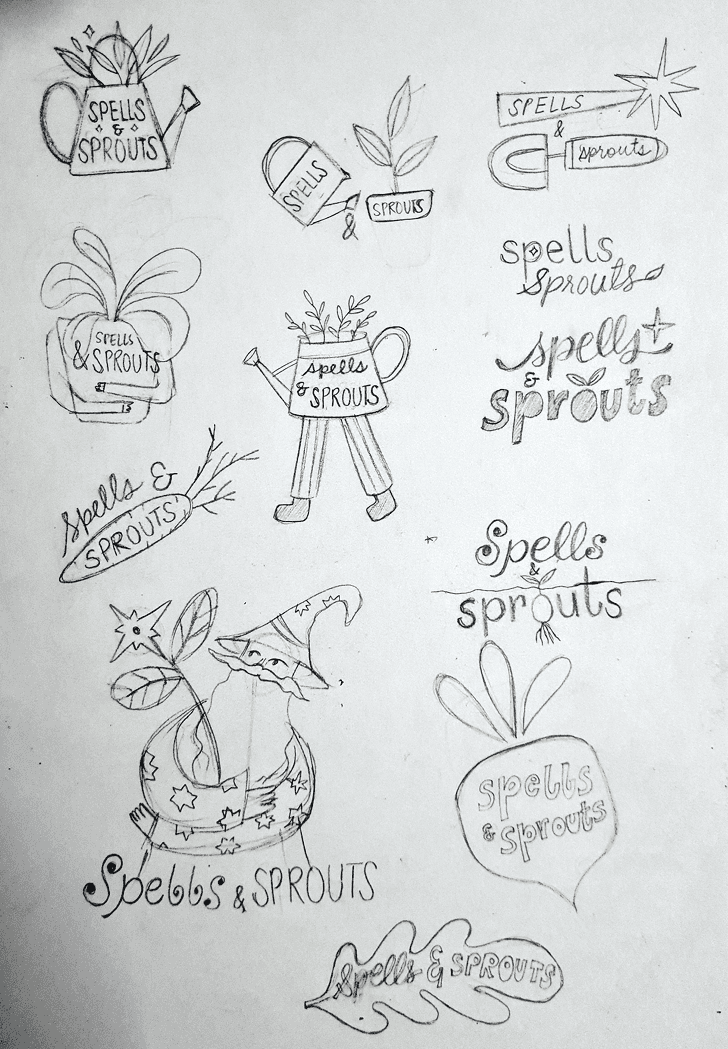 SPELLS
&
SPROUTS
SPELLS
&
SPROUTS
SPELLS
&
sprouts
spells
sprouts
spells
&
sprouts
SPELLS
& SPROUTS
spells
& SPROUTS
Spells &
SPROUTS
Spells
&
sprouts
Spells & SPROUTS
spells
& sprouts
Spells & SPROUTS